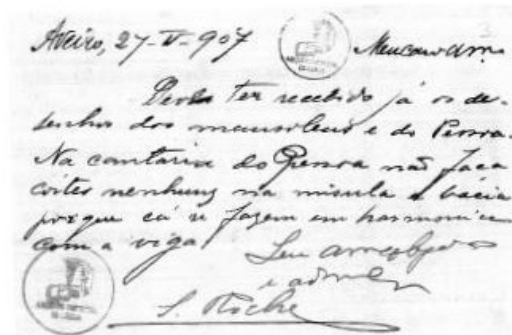 Aveiro, 27-V-907
Meu caro am.o
Deve ter recebido já os de-
senhos dos mausoleus e do Pessoa.
Na cantaria do Pessoa não faca
córtes nenhuns na misula e bacia
porque cá se fazem em harmonia
com a viga
Seu am.o obgdo
e adm.or
S. Roche